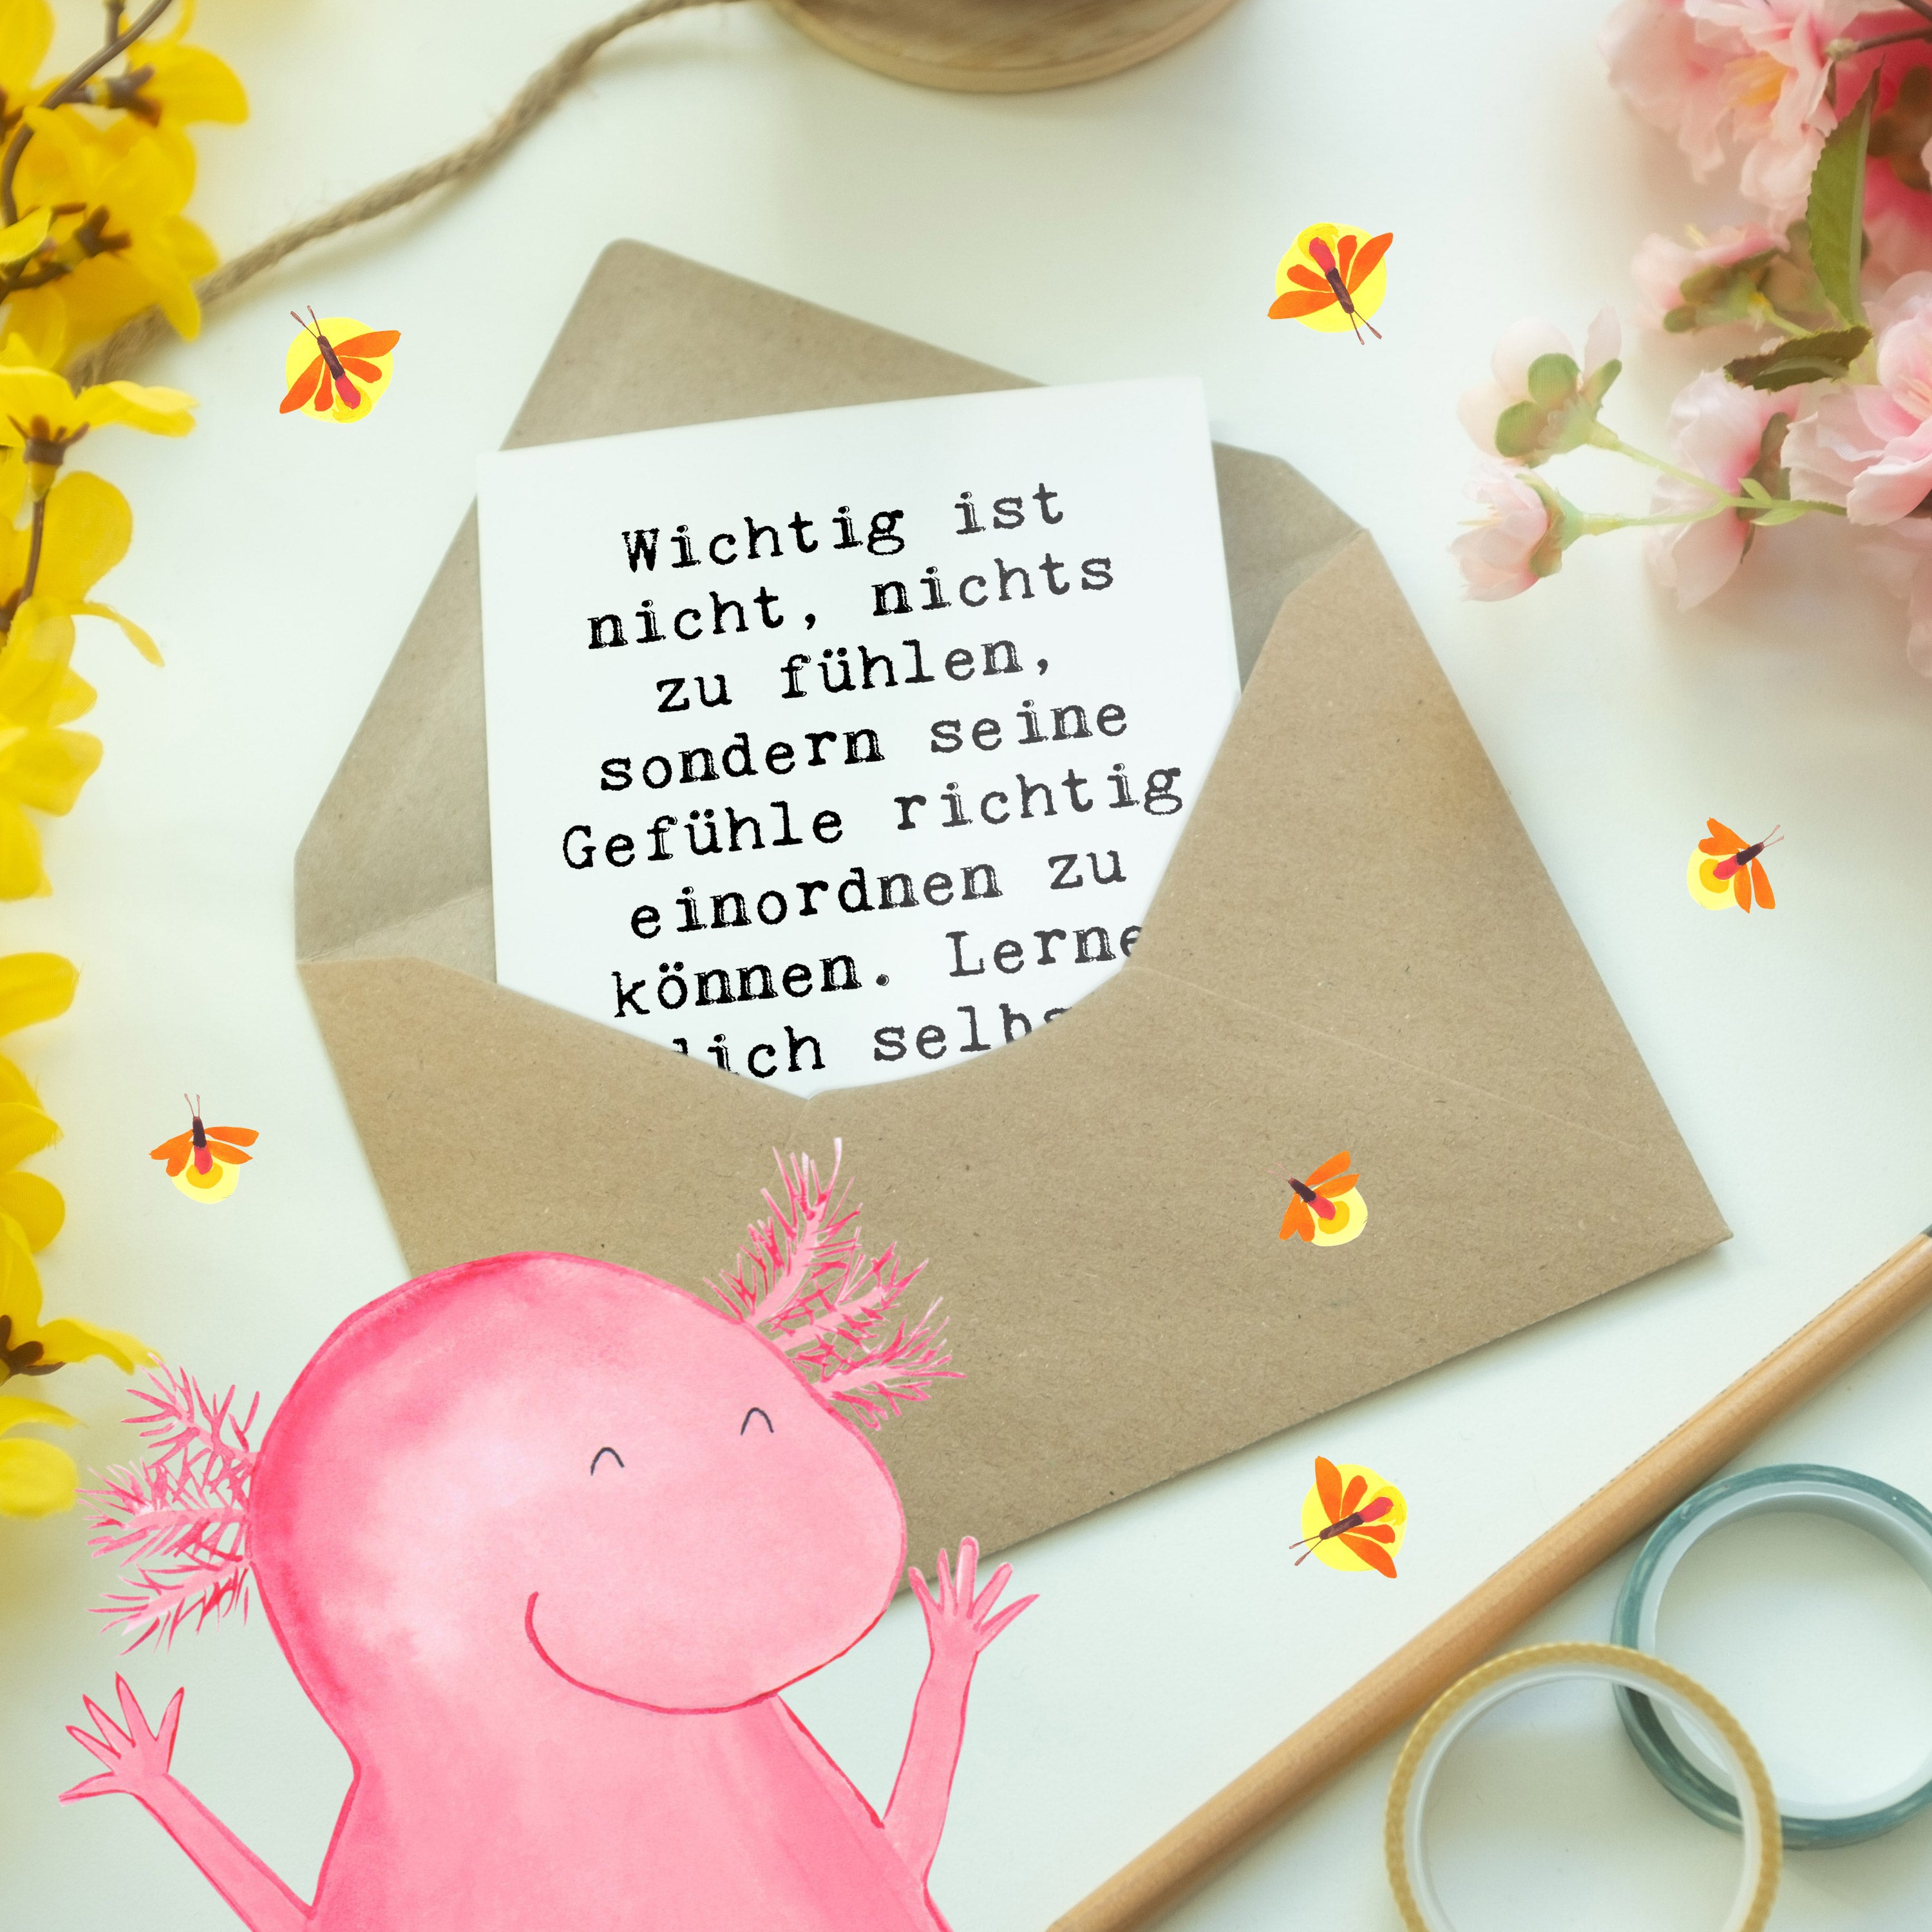 Wichtig ist
nicht, nichts
zu fühlen,
sondern seine
Gefühle richtig
einordnen zu
können. Lerne
dich selbs